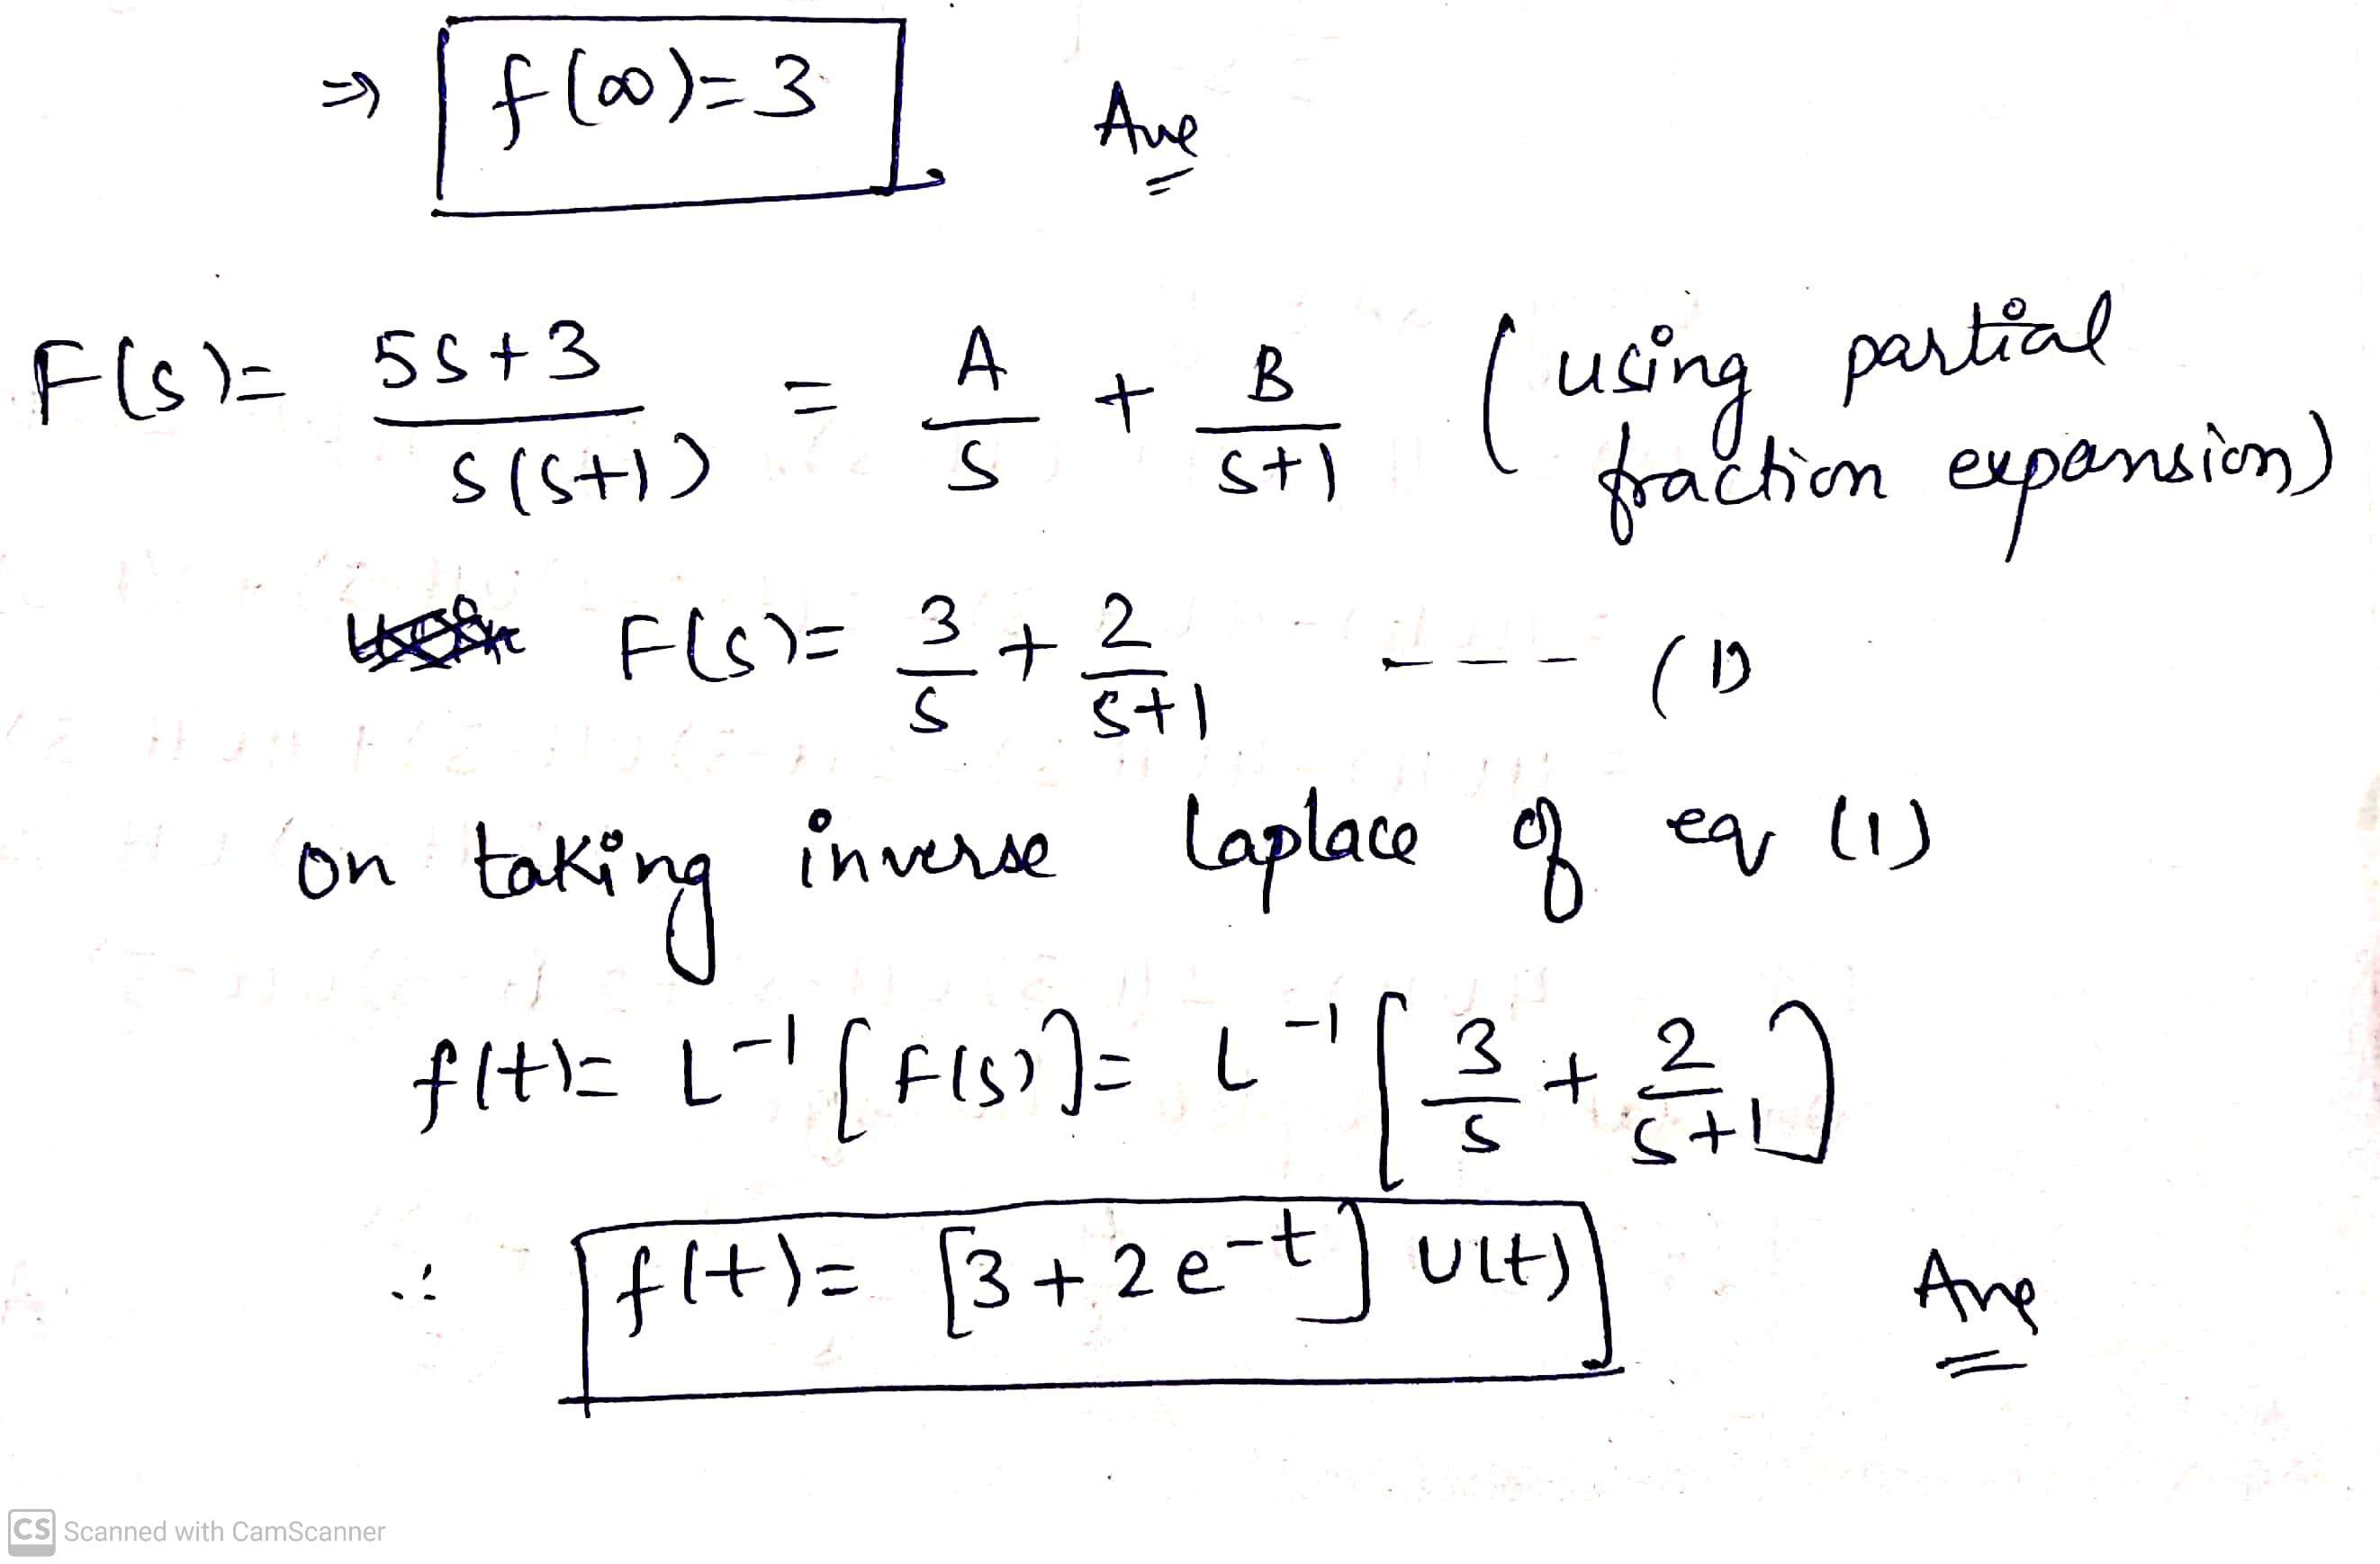 ⇒ f(∞)=3 Ans
F(s)= 5s+3 / s(s+1) = A/s + B/s+1 (using partial
fraction expansion)
F(s)= 3/s + 2/s+1 ---- (1)
on taking inverse laplace of eq (1)
f(t)= L⁻¹[F(s)]= L⁻¹[3/s + 2/s+1]
∴ f(t)= [3+2e⁻ᵗ] u(t) Ans
CS Scanned with CamScanner